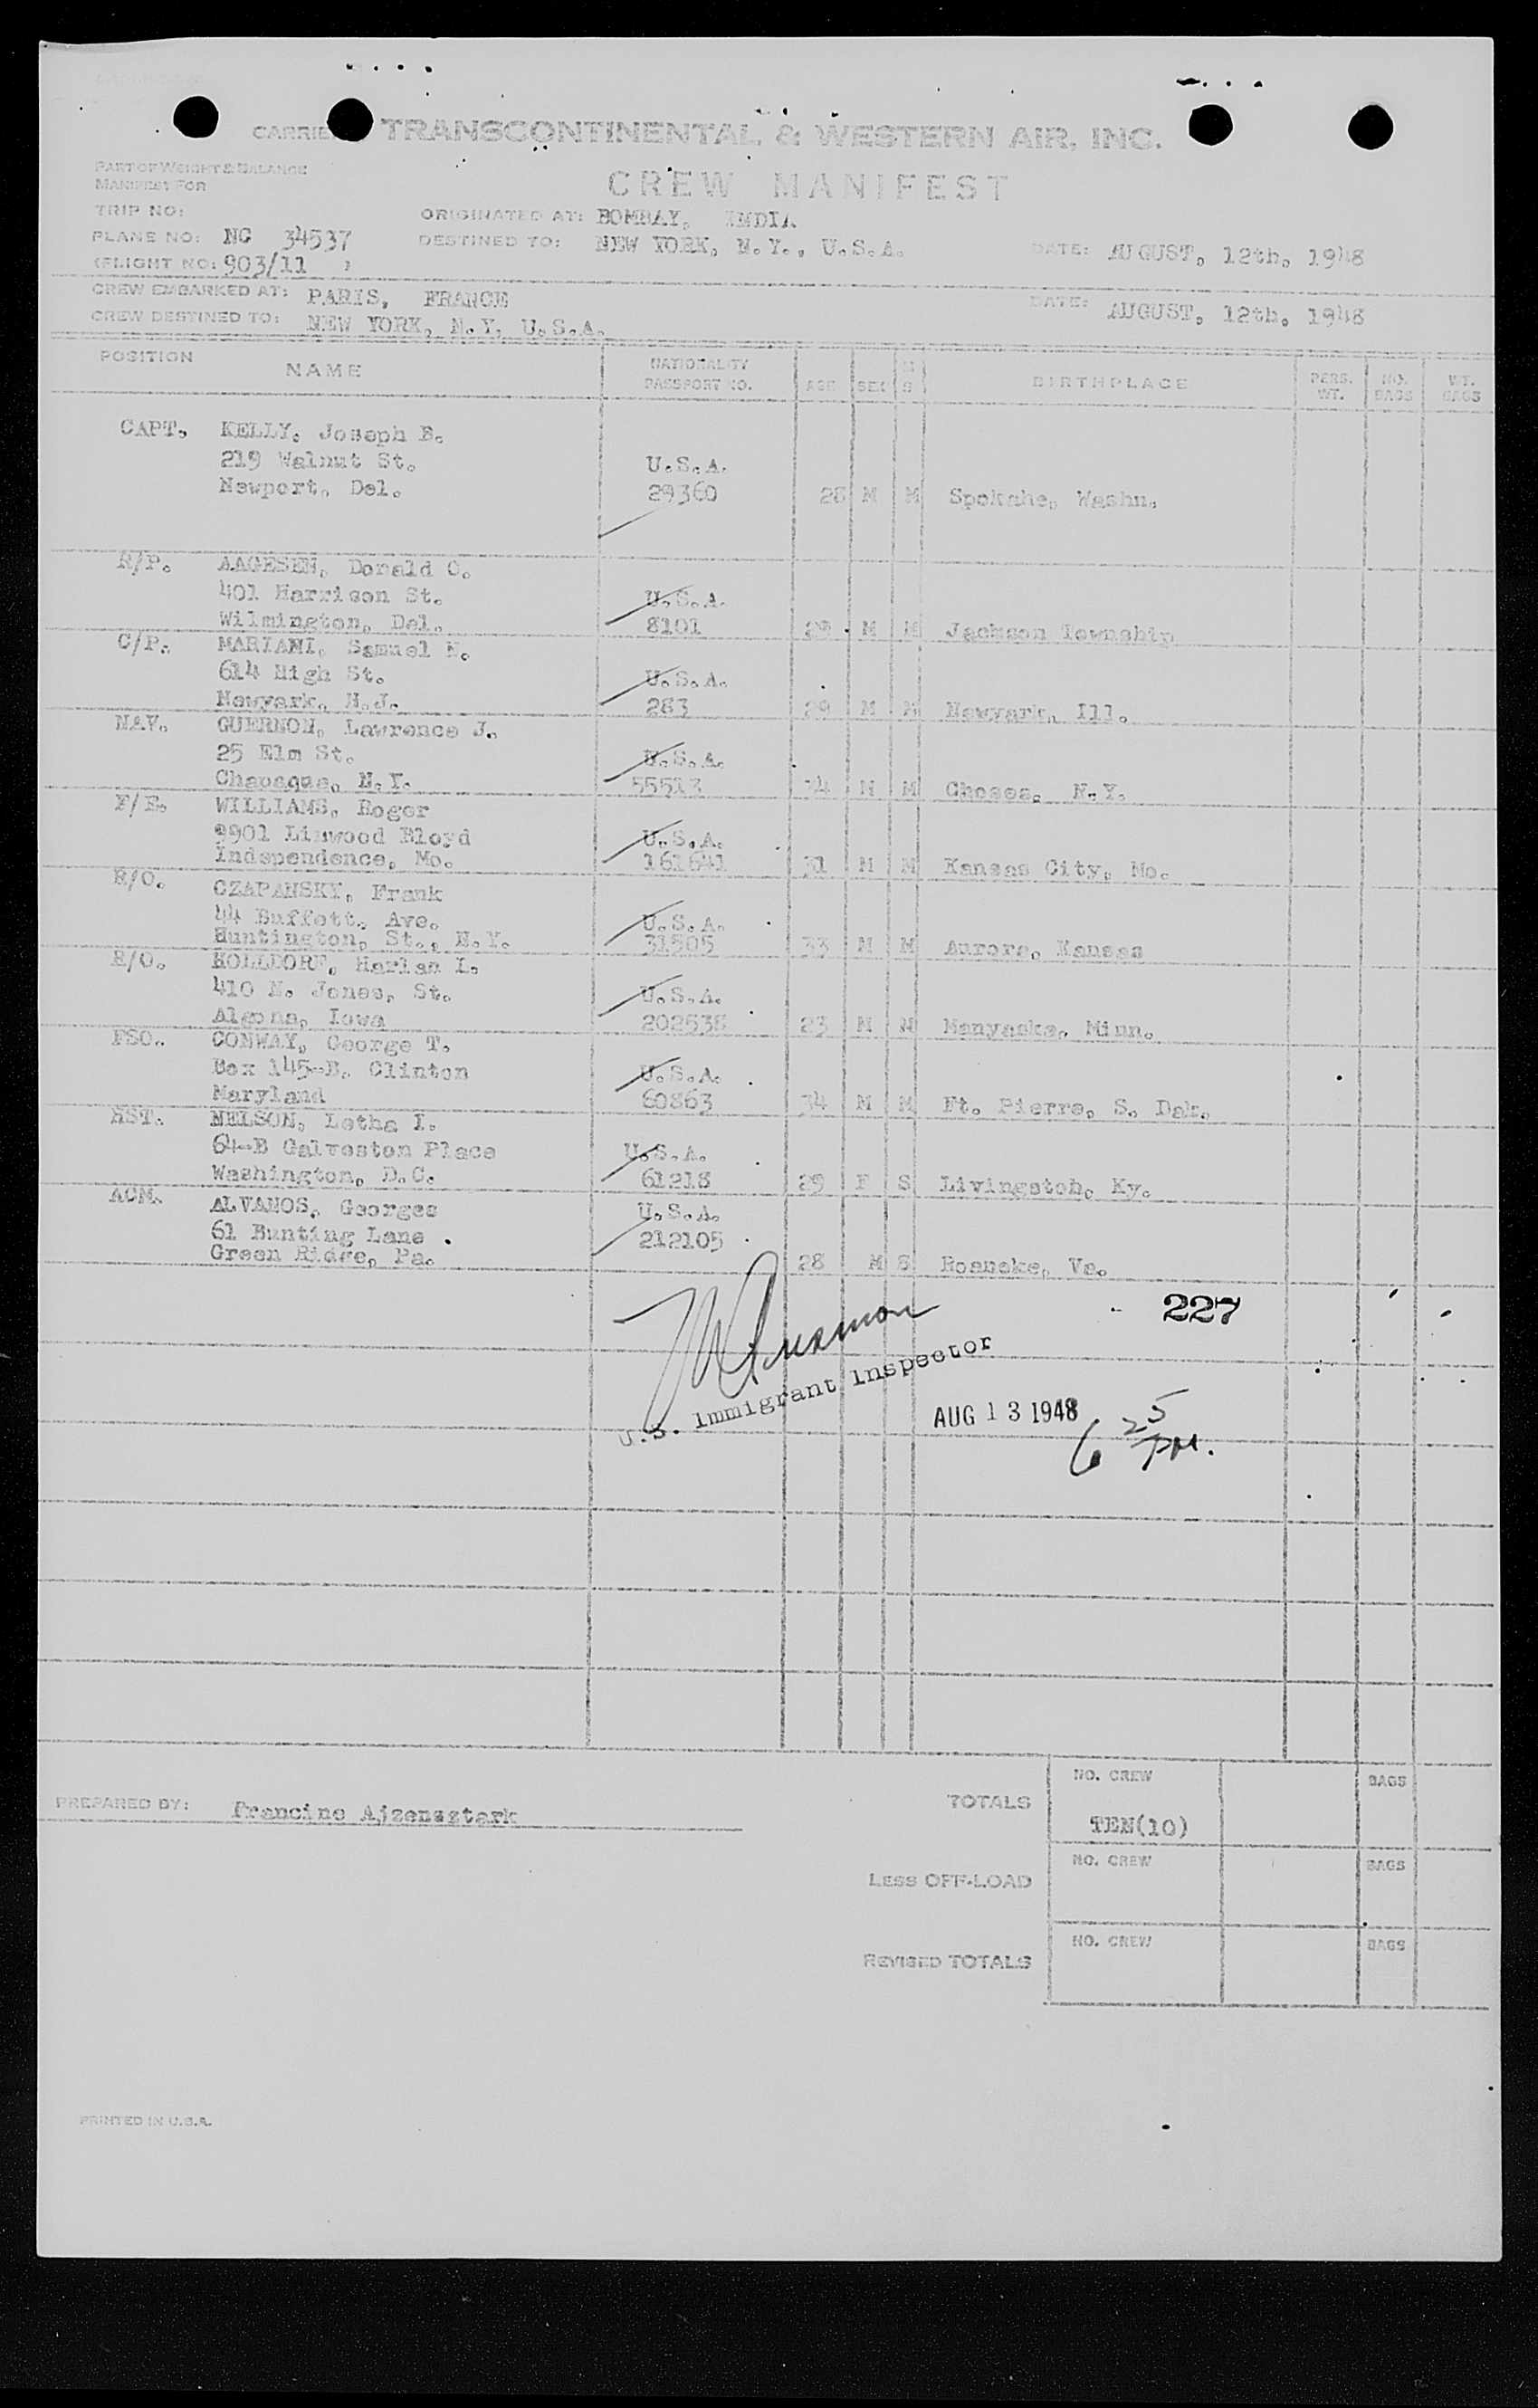 TRANSCONTINENTAL & WESTERN AIR, INC.
PART OF WEIGHT & BALANCE
MANIFEST FOR
CREW MANIFEST
TRIP NO:
ORIGINATED AT: BOMBAY, INDIA
PLANE NO: NC 34537
DESTINED TO: NEW YORK, N.Y., U.S.A.
DATE: AUGUST, 12th, 1948
(FLIGHT NO: 903/11 )
CREW EMBARKED AT: PARIS, FRANCE
DATE: AUGUST, 12th, 1948
CREW DESTINED TO: NEW YORK, N.Y, U.S.A.
POSITION NAME NATIONALITY PASSPORT NO. AGE SEX M S BIRTHPLACE PERS. WT. NO. BAGS WT. BAGS
CAPT. KELLY, Joseph B.
219 Walnut St. U.S.A.
Newport, Del. 29360 28 M M Spokahe, Washn.
R/P. AAGESEN, Donald O.
401 Harrison St. U.S.A.
Wilmington, Del. 8101 M M Jackson Township
C/P. MARIANI, Samuel N.
614 High St. U.S.A.
Newyark, N.J. 283 29 M M Newyark, Ill.
NAV. GUERNON, Lawrence J.
25 Elm St. U.S.A.
Chapaqua, N.Y. 55513 34 M M N.Y.
F/E. WILLIAMS, Roger
9901 Linwood Bloyd U.S.A.
Independence, Mo. 161641 31 M M Kansas City, Mo.
R/O. CZAPANSKY, Frank
44 Buffett. Ave. U.S.A.
Huntington, St., N.Y. 31505 33 M M Aurora, Kansas
R/O. HOLLDORF, Harlan L.
410 N. Jones, St. U.S.A.
Algona, Iowa 202538 23 M M Manyaska, Minn.
FSO. CONWAY, George T.
Box 145-B, Clinton U.S.A.
Maryland 60863 34 M M Ft. Pierre, S. Dak.
HST. NELSON, Letha I.
64-B Galveston Place U.S.A.
Washington, D.C. 61218 29 F S Livingstoh, Ky.
ACM. ALVANOS, Georges U.S.A.
61 Bunting Lane 212105
Green Ridge, Pa. 28 M S Roanoke, Va.
227
U.S. Immigrant Inspector
AUG 13 1948
6 25 PM.
NO. CREW BAGS
PREPARED BY: Francine Ajzensztark
TOTALS TEN(10)
NO. CREW BAGS
LESS OFF-LOAD
NO. CREW BAGS
REVISED TOTALS
PRINTED IN U.S.A.